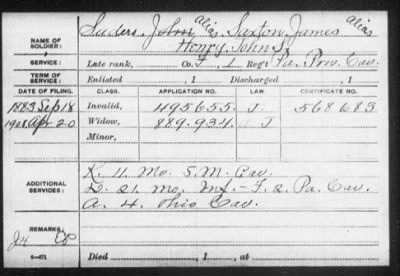 NAME OF SOLDIER: Suders, John alias Saxton, James alias
Henry, John S.
SERVICE: Late rank, Co. F, 2 Reg't Pa. Prov. Cav.
TERM OF SERVICE: Enlisted , 1 Discharged , 1
DATE OF FILING. CLASS. APPLICATION NO. LAW. CERTIFICATE NO.
1883 Sep 18 Invalid, 495655 J 568683
1908 Apr 20 Widow, 889.934 J
Minor,
ADDITIONAL SERVICES: K. 11 Mo. S.M. Cav.
D. 21. Mo. Inf. - F. 2. Pa. Cav.
A. 4. Ohio Cav.
REMARKS:
Died , 1 , at